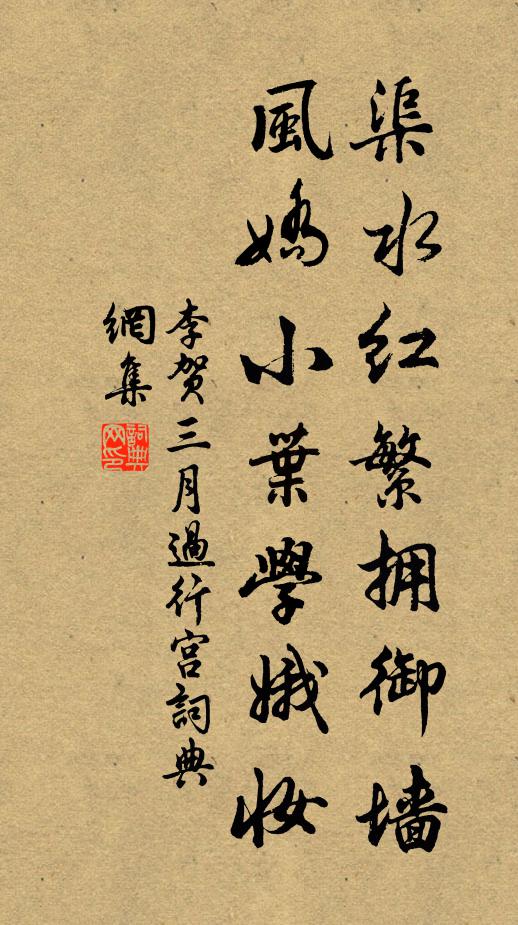 渠水红繁拥御墙
風嬌小葉學娥妝
李賀三月過行宮詞典
網集
詞典
网印